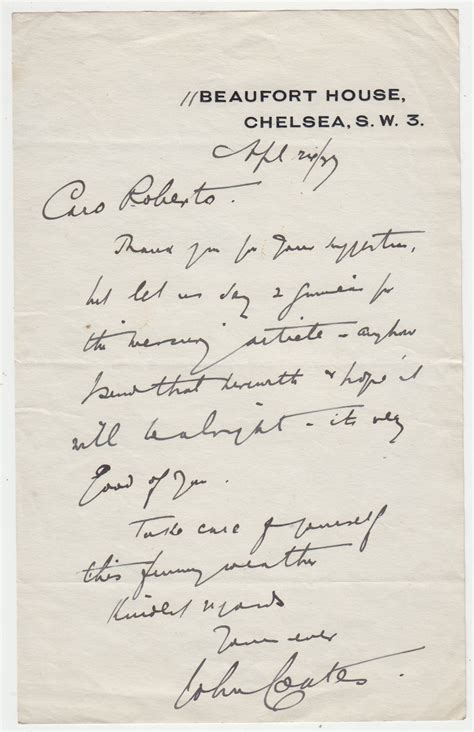 11 BEAUFORT HOUSE,
CHELSEA, S. W. 3.
Apl 24/39
Caro Roberto.
Thank you for your suggestion,
but let us say 2 Guineas for
this article - anyhow
I send that herewith & hope it
will be alright - its very
Good of you.
Take care of yourself
this funny weather
Kindest regards
Yours ever
John Coates.